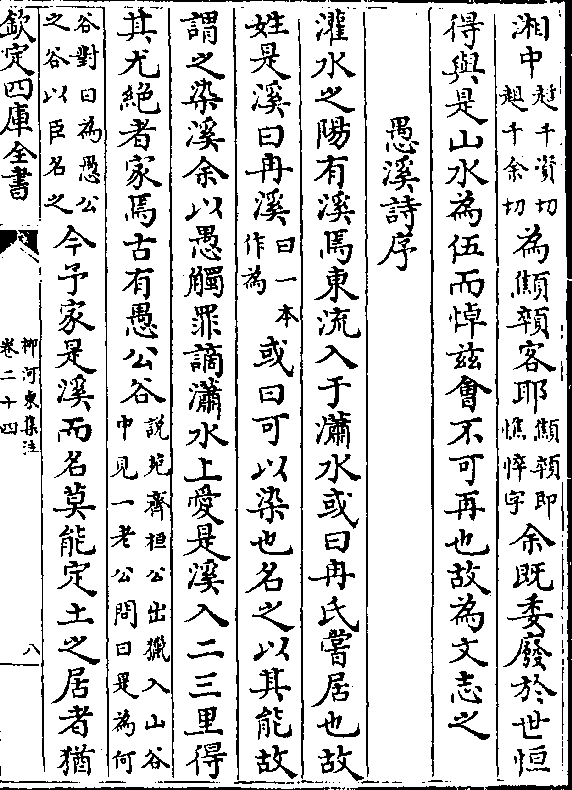 湘中赵千資切趄千余切為顦顇客耶顦顇即憔悴字余既委廢於世恒
得與是山水為伍而悼兹會不可再也故為文志之
愚溪詩序
灌水之陽有溪焉東流入于瀟水或曰冉氏嘗居也故
姓是溪曰冉溪曰一本作為或曰可以染也名之以其能故
謂之染溪余以愚觸罪謫瀟水上愛是溪入二三里得
其尤絕者家焉古有愚公谷說苑齊桓公出獵入山谷中見一老公問曰是為何
谷對曰為愚公之谷以臣名之今予家是溪而名莫能定土之居者猶
欽定四庫全書
柳河東集注
卷二十四
八